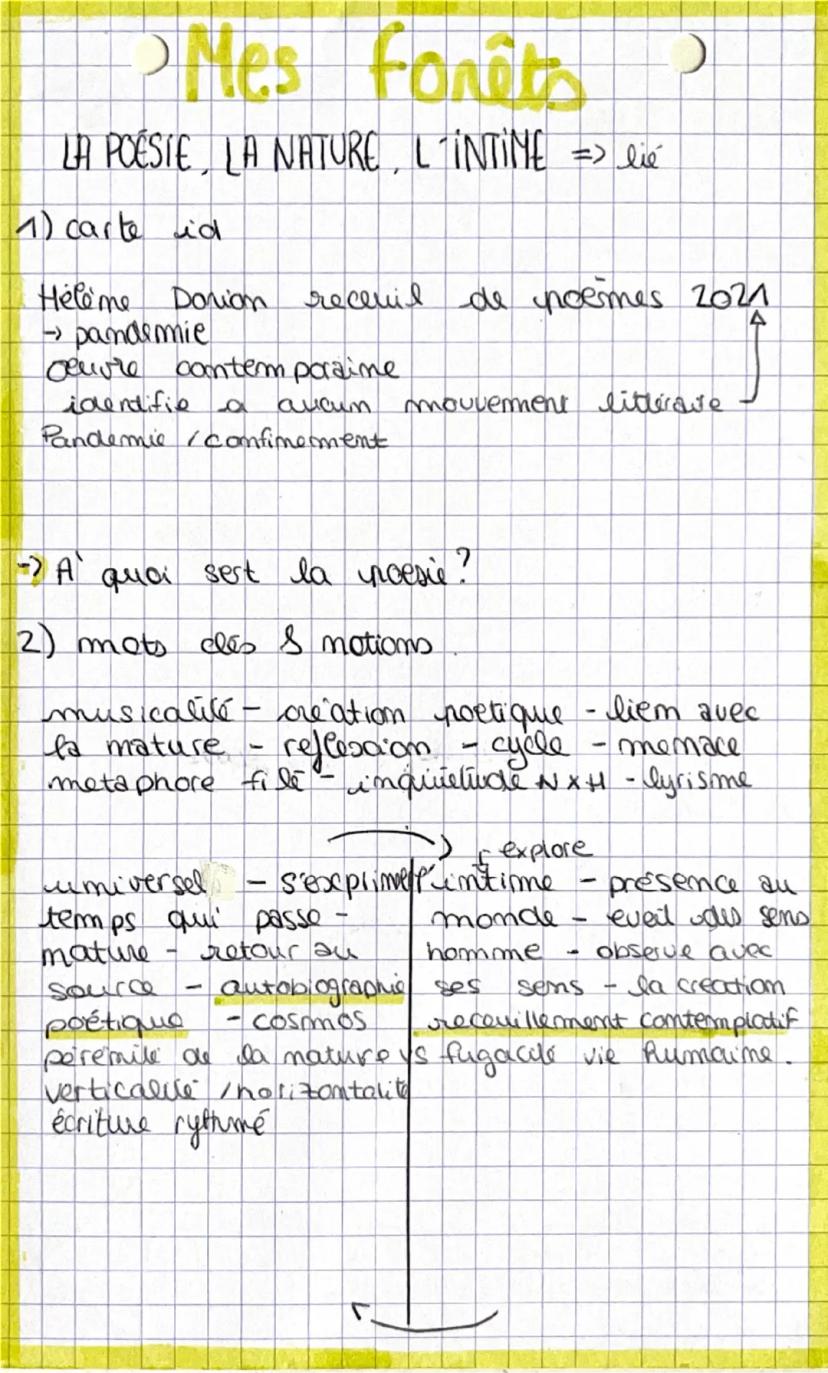 Mes forêts
LA POÉSIE, LA NATURE, L'INTIME => lié
1) carte id
Hélène Dorion receuil de poèmes 2021
→ pandemie
œuvre contemporaine
identifie a aucun mouvement littéraire
Pandemie / confinement
→ A quoi sert la poesie ?
2) mots clés & notions
musicalité - création poetique - lien avec
la nature - reflexion - cycle - menace
metaphore filé - inquiietude N x H - lyrisme
explore
universel - s'exprime l'intime - présence au
temps qui passe - monde - eveil des sens
nature - retour au homme - observe avec
source - autobiographie ses sens - la creation
poétique - cosmos receuillement contemplatif
pérénité de la nature vs fugacité vie humaine.
verticalité / horizontalité
écriture rythmé